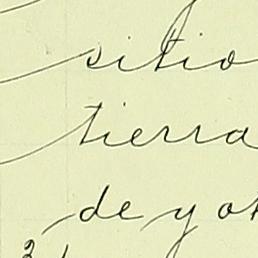 sitio
tierra
de y